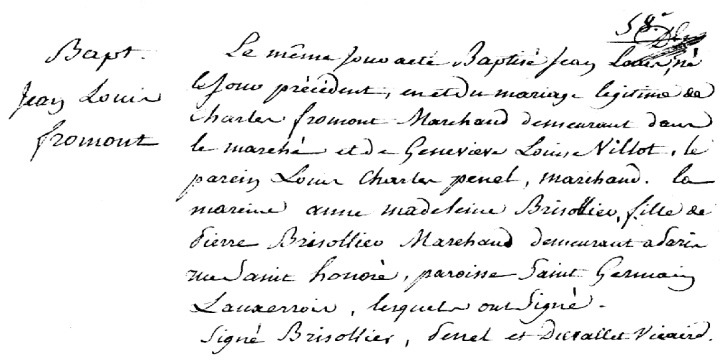 58.
Bapt.
Jean Louis
fromont
Le même jour a été Baptisé Jean Louis, né
le jour précédent, en et du mariage légitime de
Charles fromont Marchand demeurant dans
le marché et de Geneviève Louise Villot, le
parein Louis Charles penel, marchand. la
mareine anne madeleine Brisollier, fille de
Pierre Brisollier Marchand demeurant a Paris
rue Saint honoré, paroisse Saint Germain
Lauxerrois, lesquels ont Signé.
Signé Brisollier, Penel et Duvallet Vicaire.